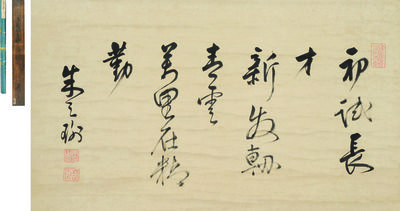 初試長
才
新發軔
青雲
萬里在精
勤
朱之瑜